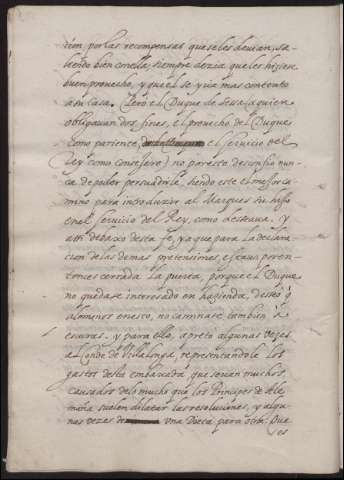 cion, por las recompensas que se les devian; sa-
liendo bien con ella; siempre dezia, que les hiziese
buen provecho, y que el se yria mas contento
a su casa. Pero el Duque de Sessa (a quien
obligavan dos fines, el provecho del Duque
como pariente, el servicio del
Rey como consejero) no por este desconfio nun-
ca de poder persuadirla, siendo este el mejor ca-
mino para introduzir al Marques su hijo
en el servicio del Rey, como deseava. y
assi debaxo desta fe, ya que para la declara-
cion de las demas pretensiones, estava por en-
tonces cerrada la puerta, porque el Duque
no quedase interesado en hazienda, desseó q̃
alomenos en esto, no caminase tambien à
escuras. y para ello, apretó algunas vezes
al Conde de Villalonga, representandole los
gastos desta embaxada que serian muchos
causados de lo mucho que los Principes de Ale-
maña suelen dilatar las resoluciones, y algu-
nas vezes de una Dieta para otra. Pua
es